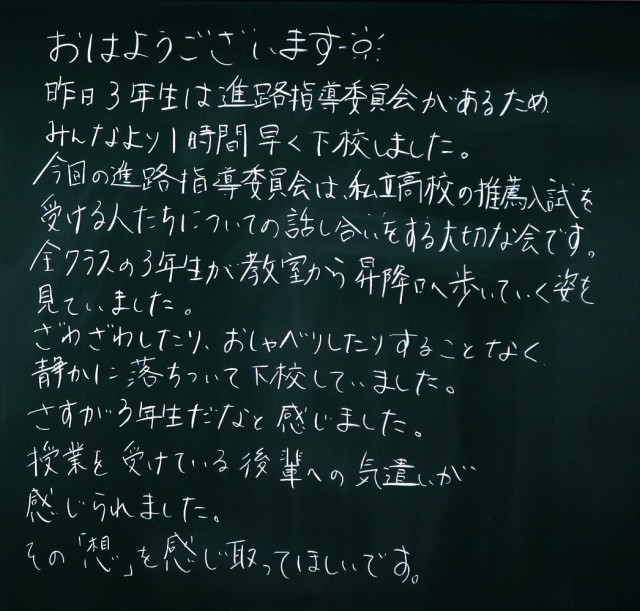 おはようございます
昨日3年生は進路指導委員会があるため
みんなより1時間早く下校しました。
今回の進路指導委員会は、私立高校の推薦入試を
受ける人たちについての話し合いをする大切な会です。
全クラスの3年生が教室から昇降口へ歩いていく姿を
見ていました。
ざわざわしたり、おしゃべりしたりすることなく
静かに落ちついて下校していました。
さすが3年生だなと感じました。
授業を受けている後輩への気遣いが
感じられました。
その「想」を感じ取ってほしいです。